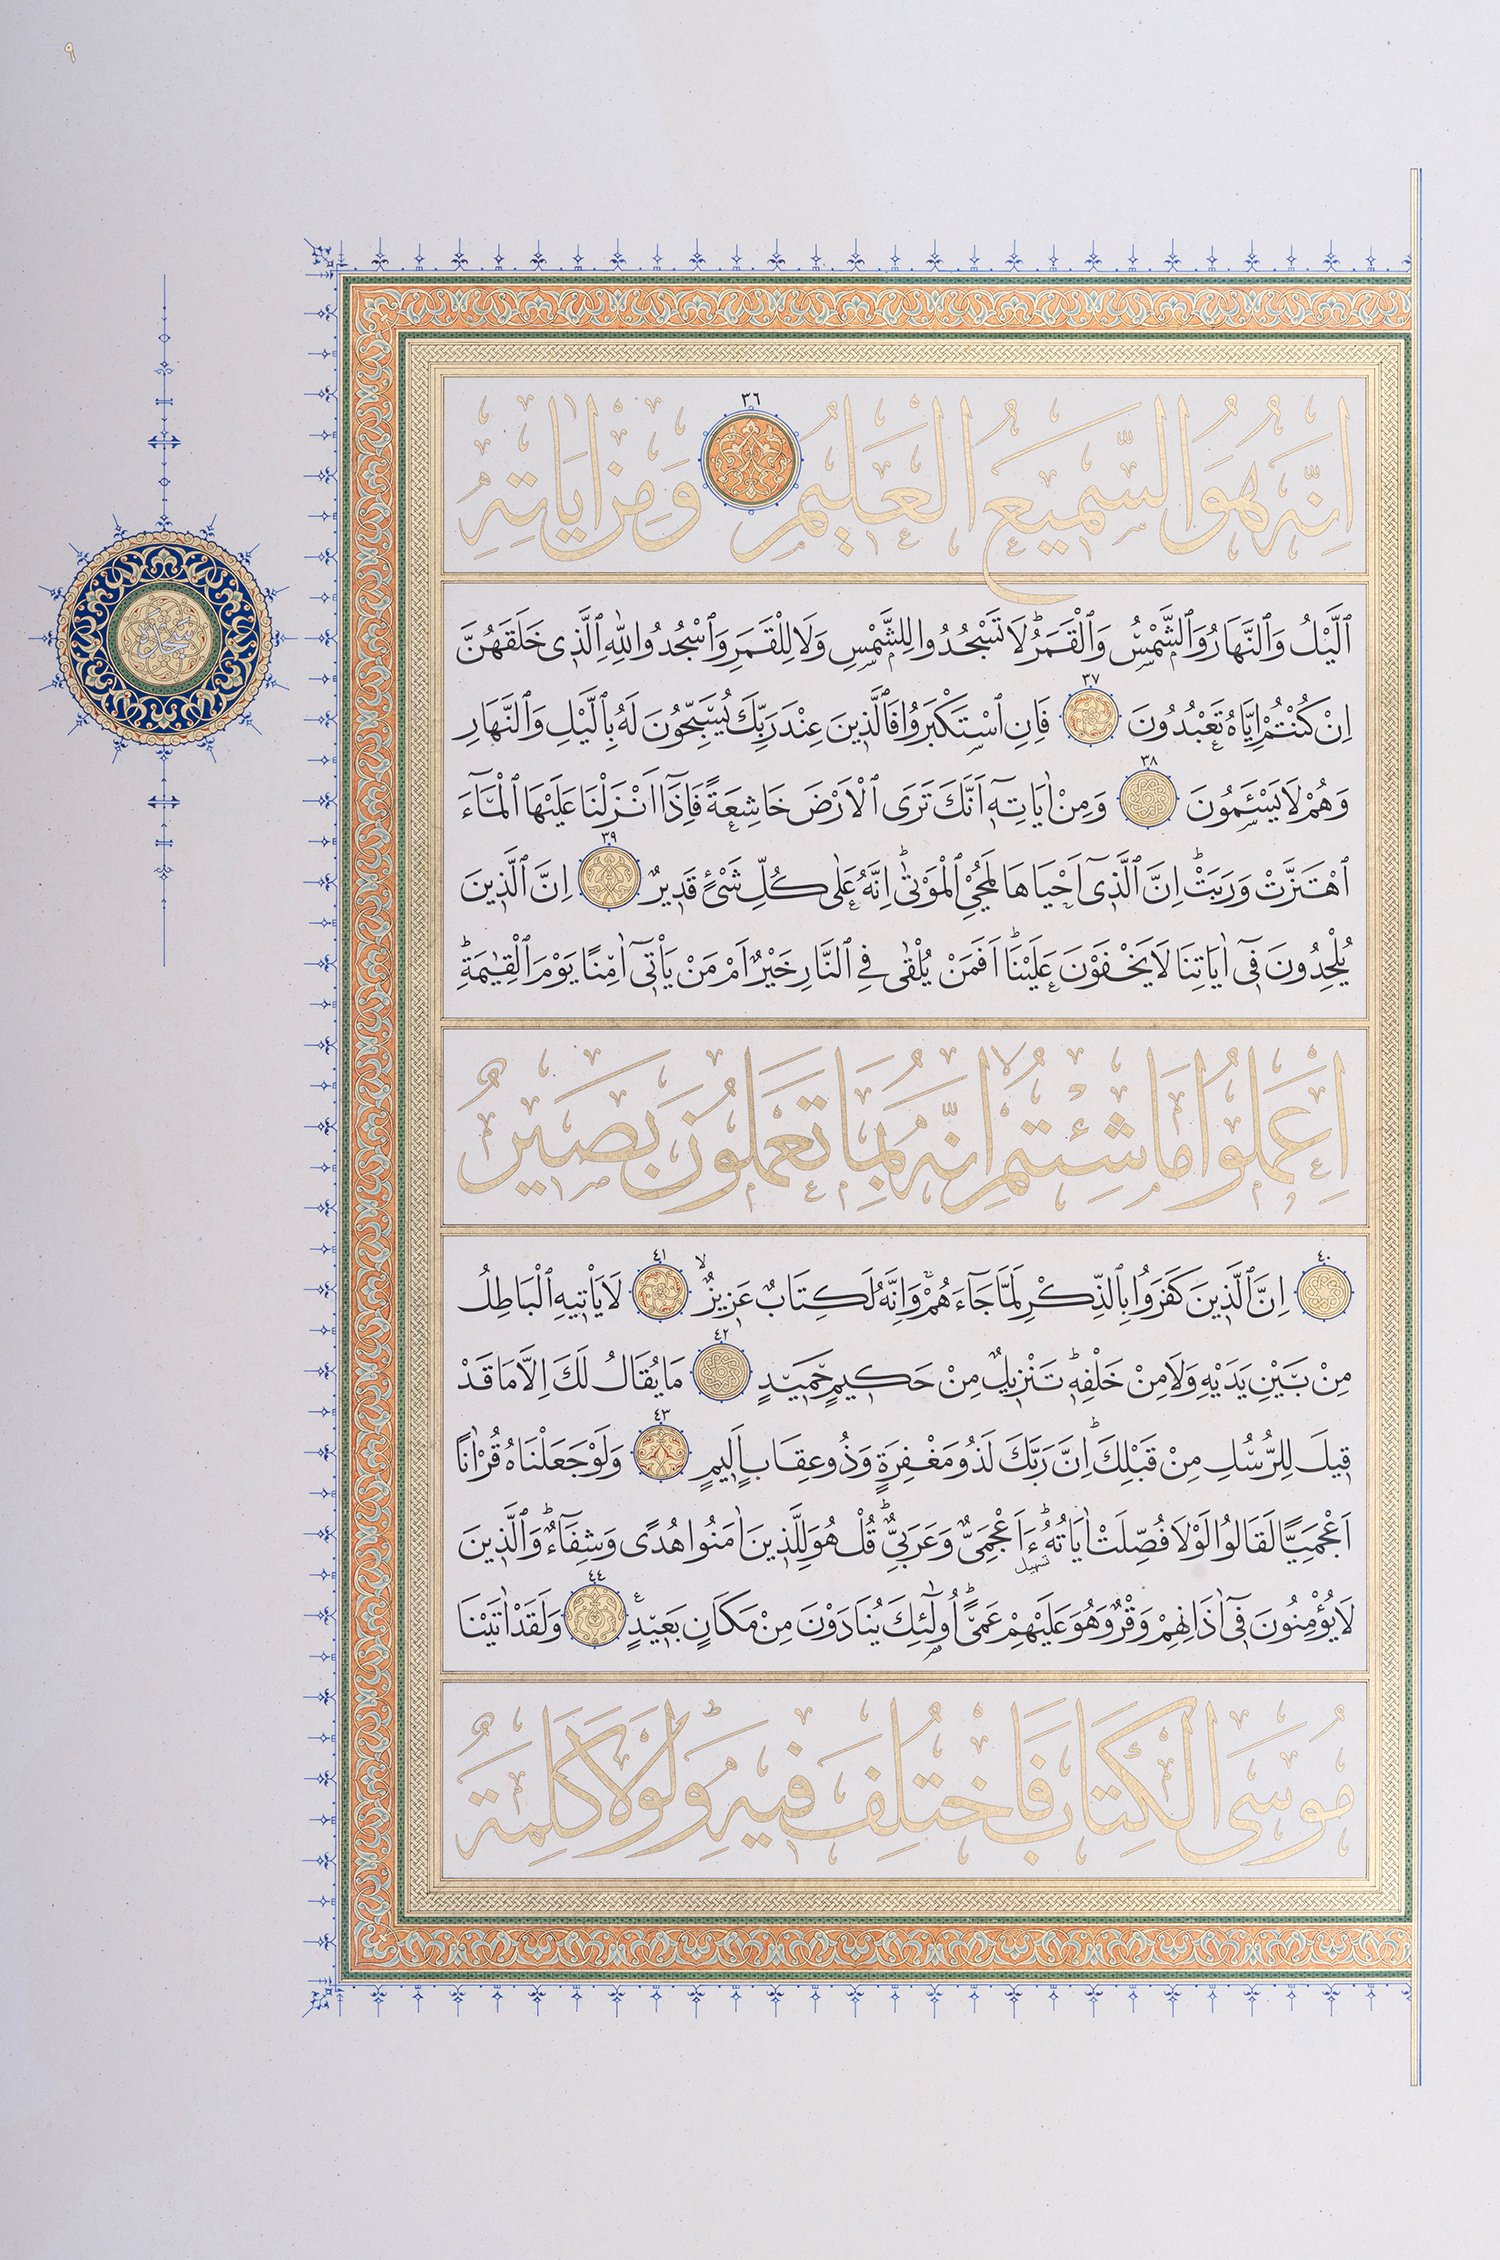 ٩
اِنَّهُ هُوَ السَّمِيعُ الْعَلِيمُ ٣٦ وَمِنْ اٰيَاتِهِ
سَجْدَه
الَّيْلُ وَالنَّهَارُ وَالشَّمْسُ وَالْقَمَرُۜ لَا تَسْجُدُوا لِلشَّمْسِ وَلَا لِلْقَمَرِ وَاسْجُدُوا لِلّٰهِ الَّذِى خَلَقَهُنَّ
اِنْ كُنْتُمْ اِيَّاهُ تَعْبُدُونَ ٣٧ فَاِنِ اسْتَكْبَرُوا فَالَّذِينَ عِنْدَ رَبِّكَ يُسَبِّحُونَ لَهُ بِالَّيْلِ وَالنَّهَارِ
وَهُمْ لَا يَسْـَٔمُونَ ٣٨ وَمِنْ اٰيَاتِهٖٓ اَنَّكَ تَرَى الْاَرْضَ خَاشِعَةً فَاِذَٓا اَنْزَلْنَا عَلَيْهَا الْمَٓاءَ
اهْتَزَّتْ وَرَبَتْۜ اِنَّ الَّذِٓى اَحْيَاهَا لَمُحْيِ الْمَوْتٰىۜ اِنَّهُ عَلٰى كُلِّ شَىْءٍ قَدِيرٌ ٣٩ اِنَّ الَّذِينَ
يُلْحِدُونَ فِٓى اٰيَاتِنَا لَا يَخْفَوْنَ عَلَيْنَاۜ اَفَمَنْ يُلْقٰى فِى النَّارِ خَيْرٌ اَمْ مَنْ يَأْتِٓى اٰمِنًا يَوْمَ الْقِيٰمَةِۜ
اِعْمَلُوا مَا شِئْتُمْۙ اِنَّهُ بِمَا تَعْمَلُونَ بَصِيرٌ
٤٠ اِنَّ الَّذِينَ كَفَرُوا بِالذِّكْرِ لَمَّا جَٓاءَهُمْۚ وَاِنَّهُ لَكِتَابٌ عَزِيزٌۙ ٤١ لَا يَأْتِيهِ الْبَاطِلُ
مِنْ بَيْنِ يَدَيْهِ وَلَا مِنْ خَلْفِهٖۜ تَنْزِيلٌ مِنْ حَكِيمٍ حَمِيدٍ ٤٢ مَا يُقَالُ لَكَ اِلَّا مَا قَدْ
قِيلَ لِلرُّسُلِ مِنْ قَبْلِكَۜ اِنَّ رَبَّكَ لَذُو مَغْفِرَةٍ وَذُو عِقَابٍ اَلِيمٍ ٤٣ وَلَوْ جَعَلْنَاهُ قُرْاٰنًا
اَعْجَمِيًّا لَقَالُوا لَوْلَا فُصِّلَتْ اٰيَاتُهُۜ ءَاَعْجَمِىٌّ وَعَرَبِىٌّۜ قُلْ هُوَ لِلَّذِينَ اٰمَنُوا هُدًى وَشِفَٓاءٌۜ وَالَّذِينَ
تسهيل
لَا يُؤْمِنُونَ فِٓى اٰذَانِهِمْ وَقْرٌ وَهُوَ عَلَيْهِمْ عَمًىۜ اُولٰٓئِكَ يُنَادَوْنَ مِنْ مَكَانٍ بَعِيدٍ ٤٤ وَلَقَدْ اٰتَيْنَا
مُوسَى الْكِتَابَ فَاخْتُلِفَ فِيهِۜ وَلَوْلَا كَلِمَةٌ